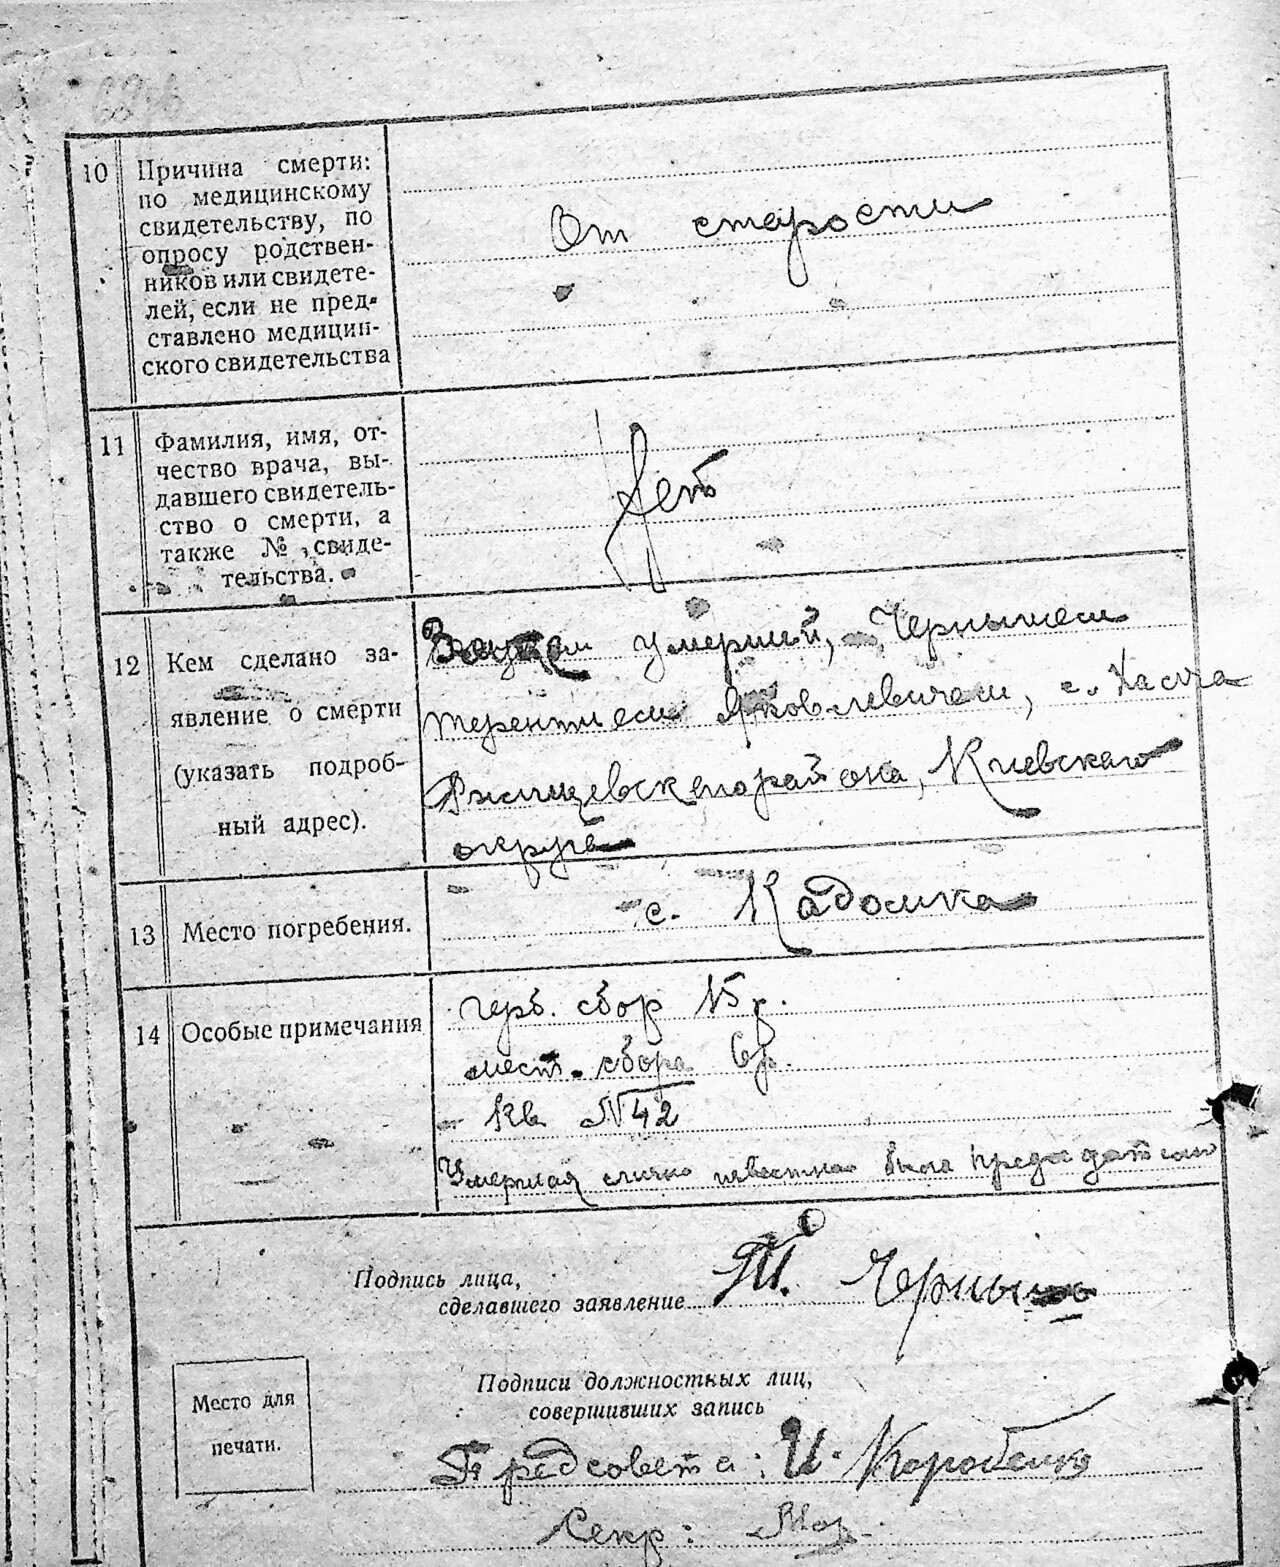 10 Причина смерти:
по медицинскому
свидетельству, по
опросу родствен-
ников или свидете-
лей, если не пред-
ставлено медицин-
ского свидетельства
От старости
11 Фамилия, имя, от-
чество врача, вы-
давшего свидетель-
ство о смерти, а
также № свиде-
тельства.
Нет
12 Кем сделано за-
явление о смерти
(указать подроб-
ный адрес).
умершей, Чернышем
Терентием Яковлевичем, с.
Ржищевского района, Киевского
округа
13 Место погребения.
с. Кадомка
14 Особые примечания
герб. сбор 15 к.
мест. сбора 6 р.
Кв №42
Умершая лично известна была председателю
Подпись лица,
сделавшего заявление Т. Черныш
Место для
печати.
Подписи должностных лиц,
совершивших запись
Предсовета: И. Коробенко
Секр: